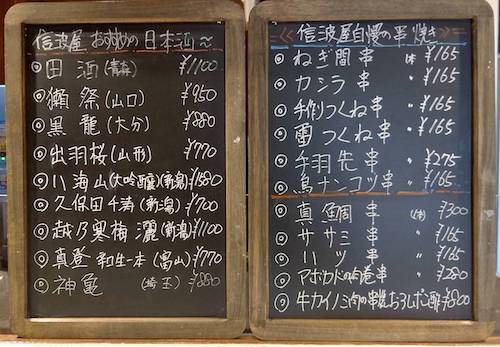 信波屋 おすすめの 日本酒〜
◎ 田 酒(青森) ¥1100
◎ 獺 祭(山口) ¥950
◎ 黒 龍(大分) ¥880
◎ 出羽桜(山形) ¥770
◎ 八海山(大吟醸)(新潟) ¥1580
◎ 久保田千寿(新潟) ¥700
◎ 越乃寒梅 灑(新潟) ¥1100
◎ 真登 和生一本(富山) ¥770
◎ 神亀 (埼玉) ¥880
信波屋自慢の串焼き
◎ ねぎ間串 (1本) ¥165
◎ カシラ 串 〃 ¥165
◎ 手作りつくね串 〃 ¥165
◎ 雷つくね串 〃 ¥165
◎ 手羽先串 〃 ¥275
◎ 鳥ナンコツ串 〃 ¥165
◎ 真 鯛 串 (1本) ¥300
◎ ササミ 串 〃 ¥165
◎ ハツ 串 〃 ¥165
◎ アボカドの肉巻串 〃 ¥280
◎ 牛カイノミ肉の串焼おろしポン酢 ¥800